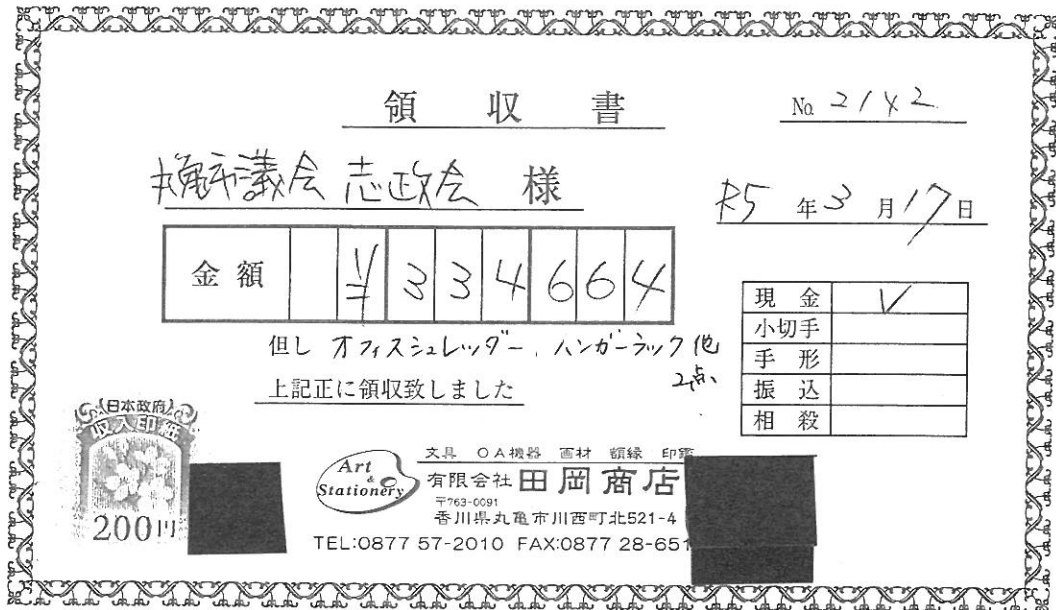 領収書
No. 2142
丸亀市議会 志政会 様
R5 年 3 月 17 日
金額 ¥334664
現金 V
小切手
手形
振込
相殺
但し オフィスシュレッダー、ハンガーラック 他
2点
上記正に領収致しました
日本政府
収入印紙
200円
Art & Stationery
文具 OA機器 画材 額縁 印
有限会社 田岡商店
〒763-0091
香川県丸亀市川西町北521-4
TEL:0877 57-2010 FAX:0877 28-651